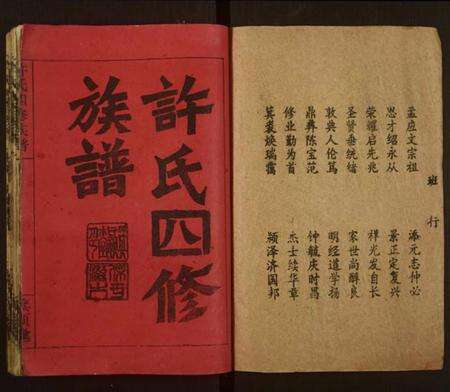 許氏四修
族譜
班行
孟应文宗祖 添元志仲必
思才绍永从 景正定复兴
荣耀启先兆 祥光发自长
圣贤垂统绪 家世尚醇良
敦典人伦笃 明经道学扬
鼎彝陈宝范 钟毓庆时昌
修业勤为首 杰士续华章
箕裘焕瑞霭 颖泽济国邦